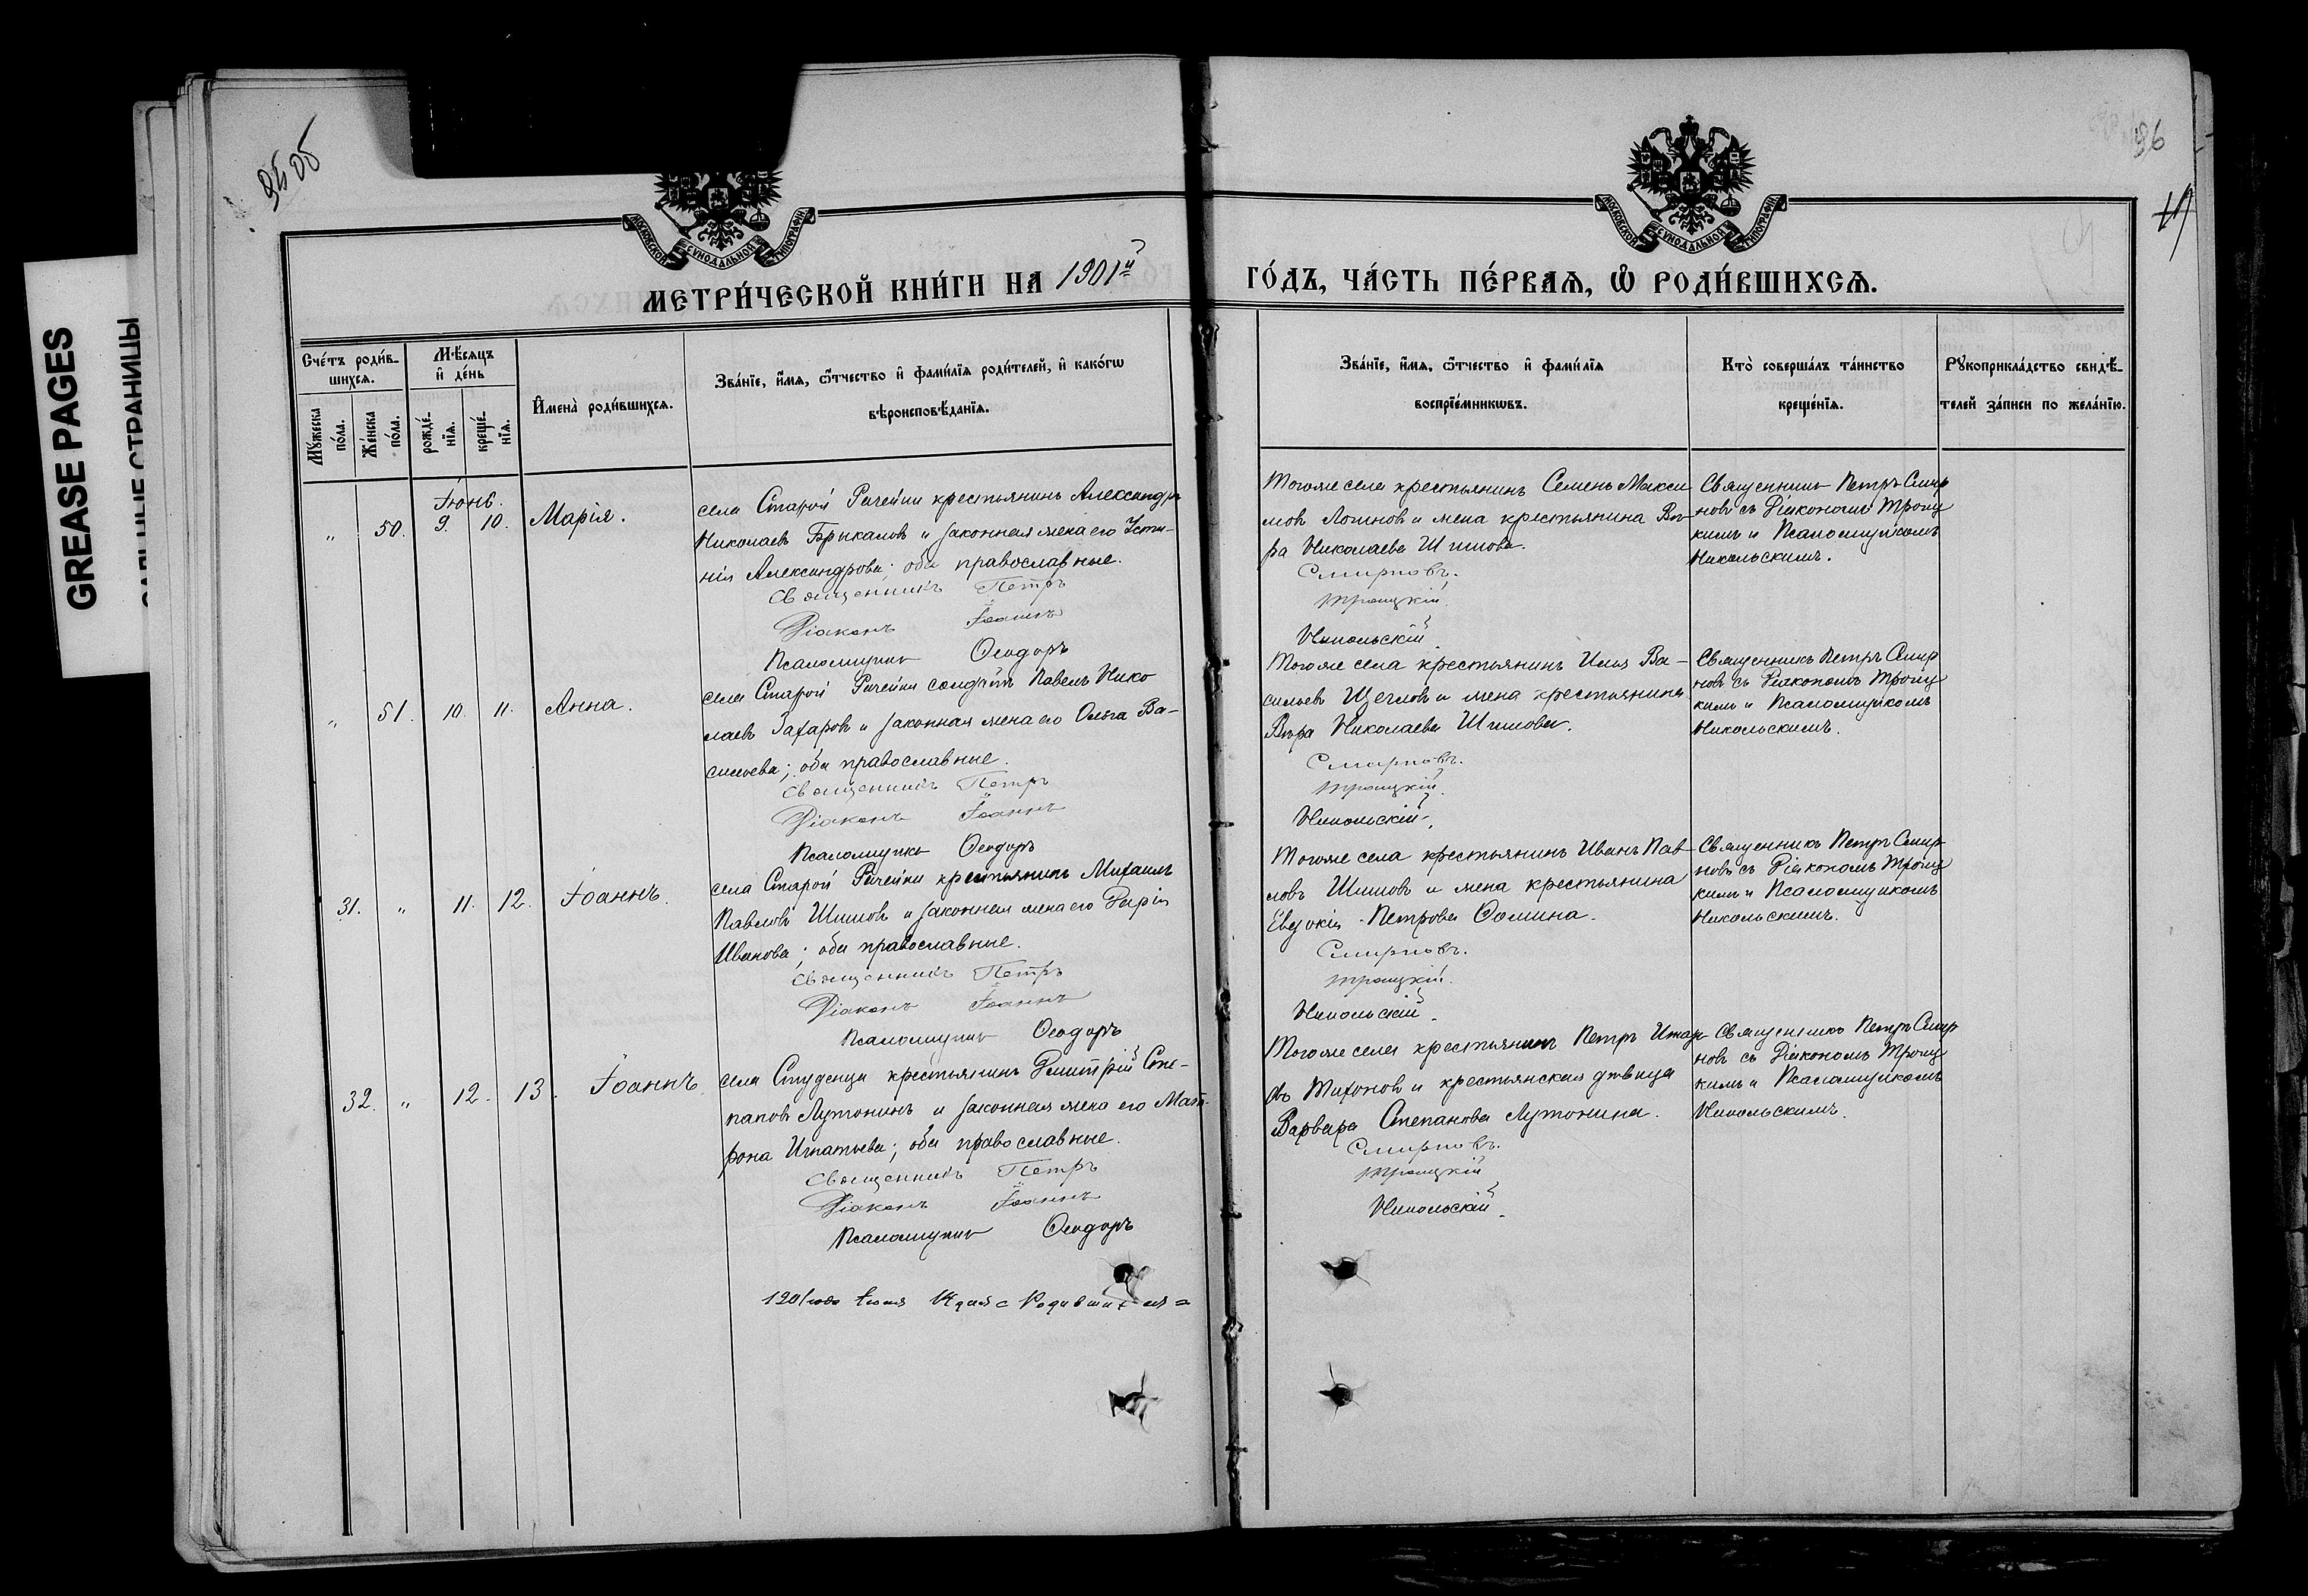 95 об
96
GREASE PAGES
САЛЬНЫЕ СТРАНИЦЫ
МОСКОВСКОЙ СѴНОДАЛЬНОЙ ТИПОГРАФІИ
МОСКОВСКОЙ СѴНОДАЛЬНОЙ ТИПОГРАФІИ
МЕТРИ́ЧЕСКОЙ КНИ́ГИ НА 1901й
ГО́ДЪ, ЧА́СТЬ ПЕ́РВАѦ, Ѡ҆ РОДИ́ВШИХСѦ.
Сче́тъ роди́в-
шихсѧ.
Мꙋ́жеска по́ла.
Же́нска по́ла.
Мѣ́сѧцъ и҆ де́нь
рожде́-нїѧ.
креще́-нїѧ.
И҆мена̀ роди́вшихсѧ.
Зва́нїе, и҆́мѧ, ѻ҆́тчество и҆ фами́лїѧ роди́телей, и҆ како́гѡ
вѣроисповѣ́данїѧ.
Зва́нїе, и҆́мѧ, ѻ҆́тчество и҆ фами́лїѧ
воспрїе́мникѡвъ.
Кто̀ соверша́лъ та́инство
креще́нїѧ.
Рꙋкоприкла́дство свидѣ́-
телей за́писи по жела́нїю.
Іюнь.
" 50. 9. 10. Марія.
села Старой Рачейки крестьянинъ Александръ
Николаевъ Брыкаловъ и законная жена его Усти-
нія Александрова; оба православные.
Священникъ Петръ
Діаконъ Іоаннъ
Псаломщикъ Ѳеодоръ
Тогоже села крестьянинъ Семенъ Макси
мовъ Логиновъ и жена крестьянина Вѣ-
ра Николаева Шишова.
Смирновъ.
Троицкій.
Никольскій.
Священникъ Петръ Смир
новъ съ Діакономъ Троиц
кимъ и Псаломщикомъ
Никольскимъ.
" 51. 10. 11. Анна.
села Старой Рачейки солдатъ Павелъ Нико
лаевъ Захаровъ и законная жена его Ольга Ва-
сильева; оба православные.
Священникъ Петръ
Діаконъ Іоаннъ
Псаломщикъ Ѳеодоръ
Тогоже села крестьянинъ Илья Ва-
сильевъ Щегловъ и жена крестьянина
Вѣра Николаева Шишова.
Смирновъ.
Троицкій.
Никольскій.
Священникъ Петръ Смир
новъ съ Діакономъ Троиц
кимъ и Псаломщикомъ
Никольскимъ.
31. " 11. 12. Іоаннъ.
села Старой Рачейки крестьянинъ Михаилъ
Павловъ Шишовъ и законная жена его Дарія
Иванова; оба православные.
Священникъ Петръ
Діаконъ Іоаннъ
Псаломщикъ Ѳеодоръ
Тогоже села крестьянинъ Иванъ Пав
ловъ Шишовъ и жена крестьянина
Евдокія Петрова Ѳомина.
Смирновъ.
Троицкій.
Никольскій.
Священникъ Петръ Смир
новъ съ Діакономъ Троиц
кимъ и Псаломщикомъ
Никольскимъ.
32. " 12. 13. Іоаннъ.
села Студенца крестьянинъ Димитрій Сте-
пановъ Лутонинъ и законная жена его Мат-
рона Игнатьева; оба православные.
Священникъ Петръ
Діаконъ Іоаннъ
Псаломщикъ Ѳеодоръ
Тогоже села крестьянинъ Петръ
Тихоновъ и крестьянская дѣвица
Варвара Степанова Лутонина.
Смирновъ.
Троицкій
Никольскій.
Священникъ Петръ Смир
новъ съ Діакономъ Троиц
кимъ и Псаломщикомъ
Никольскимъ.
1901 года Іюня Родившихся =